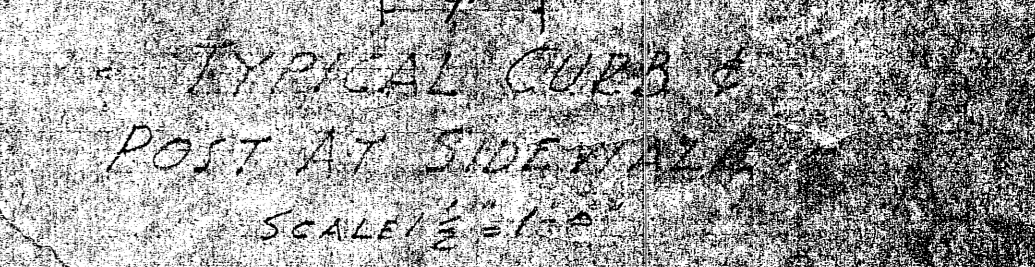 TYPICAL CURB &
POST AT SIDEWALK
SCALE 1 1/2" = 1'-0"